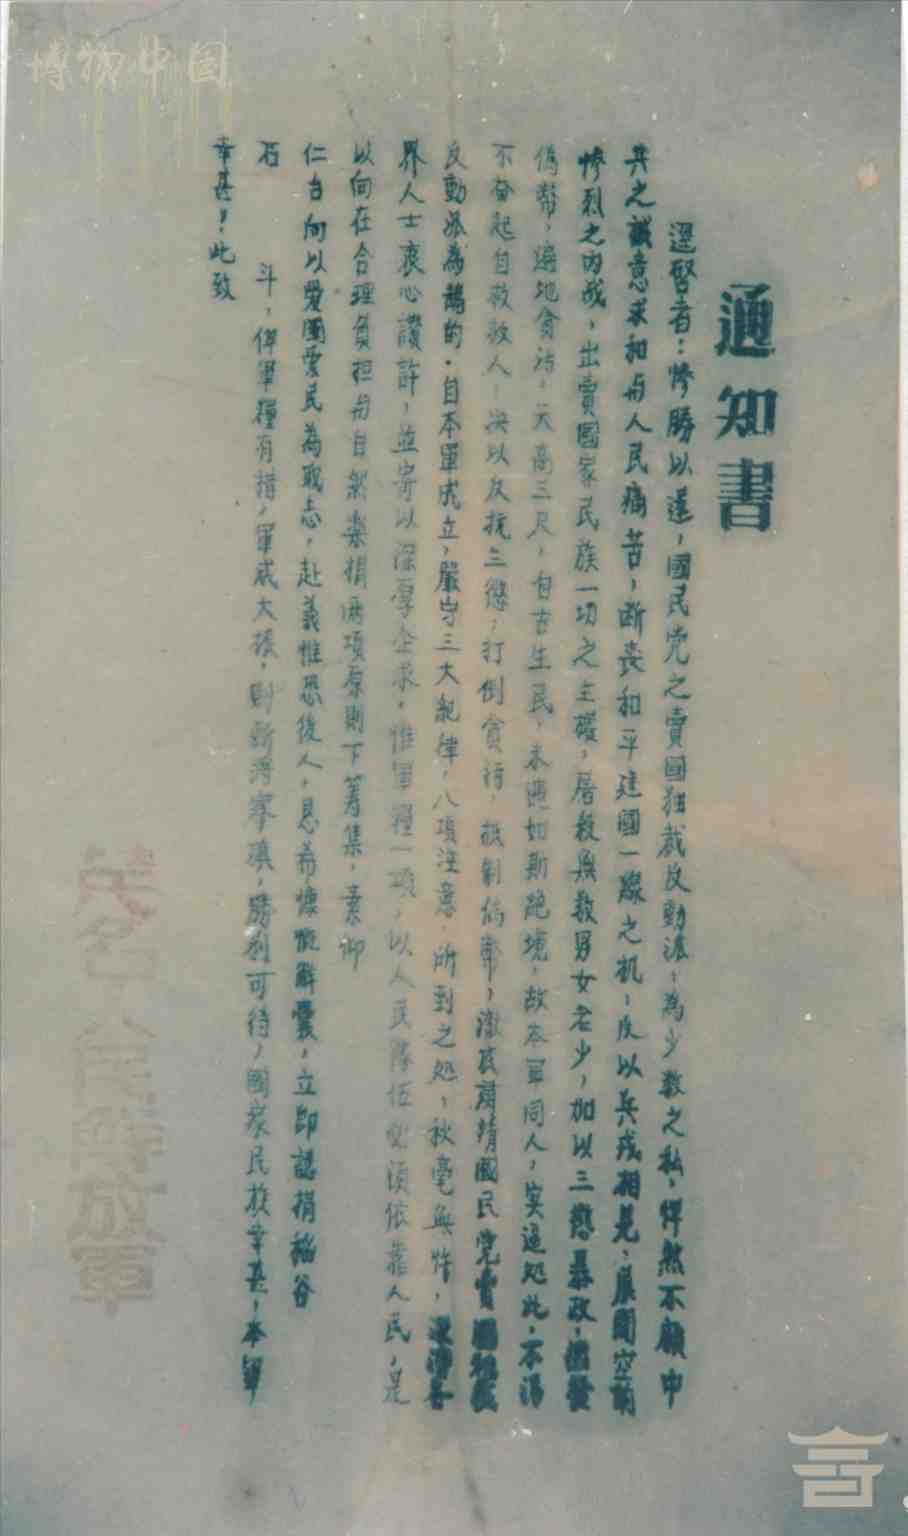 博物中国
通知書
逕啓者：慘勝以還，國民党之賣國独裁反動派，為少数之私，悍然不顧中
共之誠意求和与人民痛苦，断丧和平建國一線之机，反以兵戎相見，展開空前
慘烈之内战，出賣國家民族一切之主權，屠殺無数男女老少，加以三徵暴政，濫發
偽幣，遍地貪污，天高三尺，自古生民，未遇如斯絶境，故本軍同人，实逼処此，不得
不奋起自救救人，决以反抗三徵，打倒貪污，抵制偽幣，澈底肅清國民党賣國独裁
反動派為鵠的。自本軍成立，嚴守三大紀律，八項注意，所到之処，秋毫無犯，深得各
界人士衷心讚許，並寄以深厚企求，惟軍糧一項，以人民隊伍必須依靠人民，是
以向在合理負担与自動樂捐兩項原則下筹集，素仰
仁台向以爱國爱民為職志，赴義惟恐後人，息希慷慨解囊，立即認捐稻谷
石 斗，俾軍糧有措，軍威大振，則新灣寧鎮，勝利可待，國家民族幸甚，本軍
幸甚！此致
茂名人民解放軍